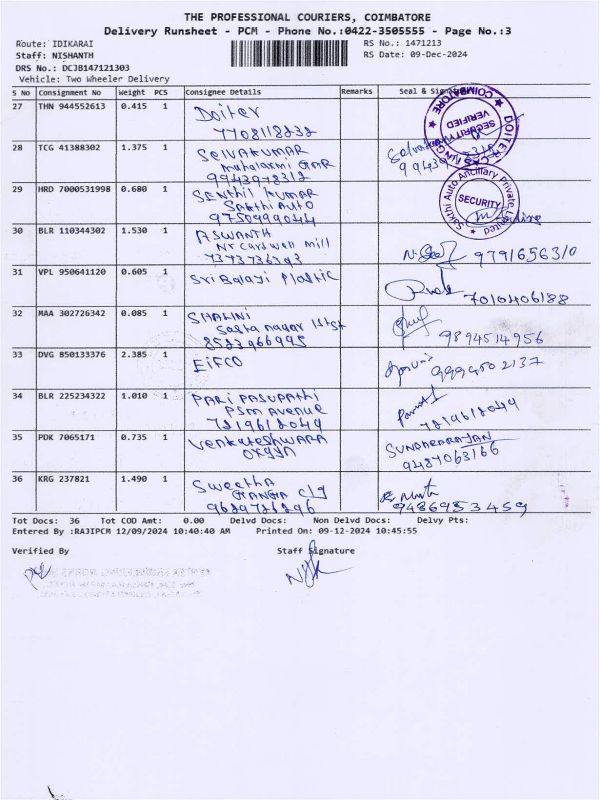 THE PROFESSIONAL COURIERS, COIMBATORE
Delivery Runsheet - PCM - Phone No.:0422-3505555 - Page No.:3
Route: IDIKARAI RS No.: 1471213
Staff: NISHANTH RS Date: 09-Dec-2024
DRS No.: DCJB147121303
Vehicle: Two Wheeler Delivery
S No Consignment No Weight PCS Consignee Details Remarks Seal & Signature
27 THN 944552613 0.415 1 Doiter
7708118232
COIMBATORE
SECURITY
VERIFIED
28 TCG 41388302 1.375 1 SELVAKUMAR
Mahalaxmi GAR
9943978312
29 HRD 7000531998 0.680 1 SENTHIL KUMAR
Sakthi Auto
9750999044
Sakthi Auto Ancillary Private Limited
SECURITY
30 BLR 110344302 1.530 1 ASWANTH
Nr Cardwell mill
7373736393
9791656310
31 VPL 950641120 0.605 1 Sri Balaji Plastic
7010406188
32 MAA 302726342 0.085 1 SHALINI
Sasta nagar 1st st
8523966995
9894514956
33 DVG 850133376 2.385 1 EIFCO
34 BLR 225234322 1.010 1 PARI PASUPATHI
PSM Avenue
7219612049
7219612049
35 PDK 7065171 0.735 1 Venkateshwara
oxygn
SUNDHARARAJAN
9487063166
36 KRG 237821 1.490 1 Sweetha
GANGA
9629726296
9486953459
Tot Docs: 36 Tot COD Amt: 0.00 Delvd Docs: Non Delvd Docs: Delvy Pts:
Entered By :RAJIPCM 12/09/2024 10:40:40 AM Printed On: 09-12-2024 10:45:55
Verified By Staff Signature